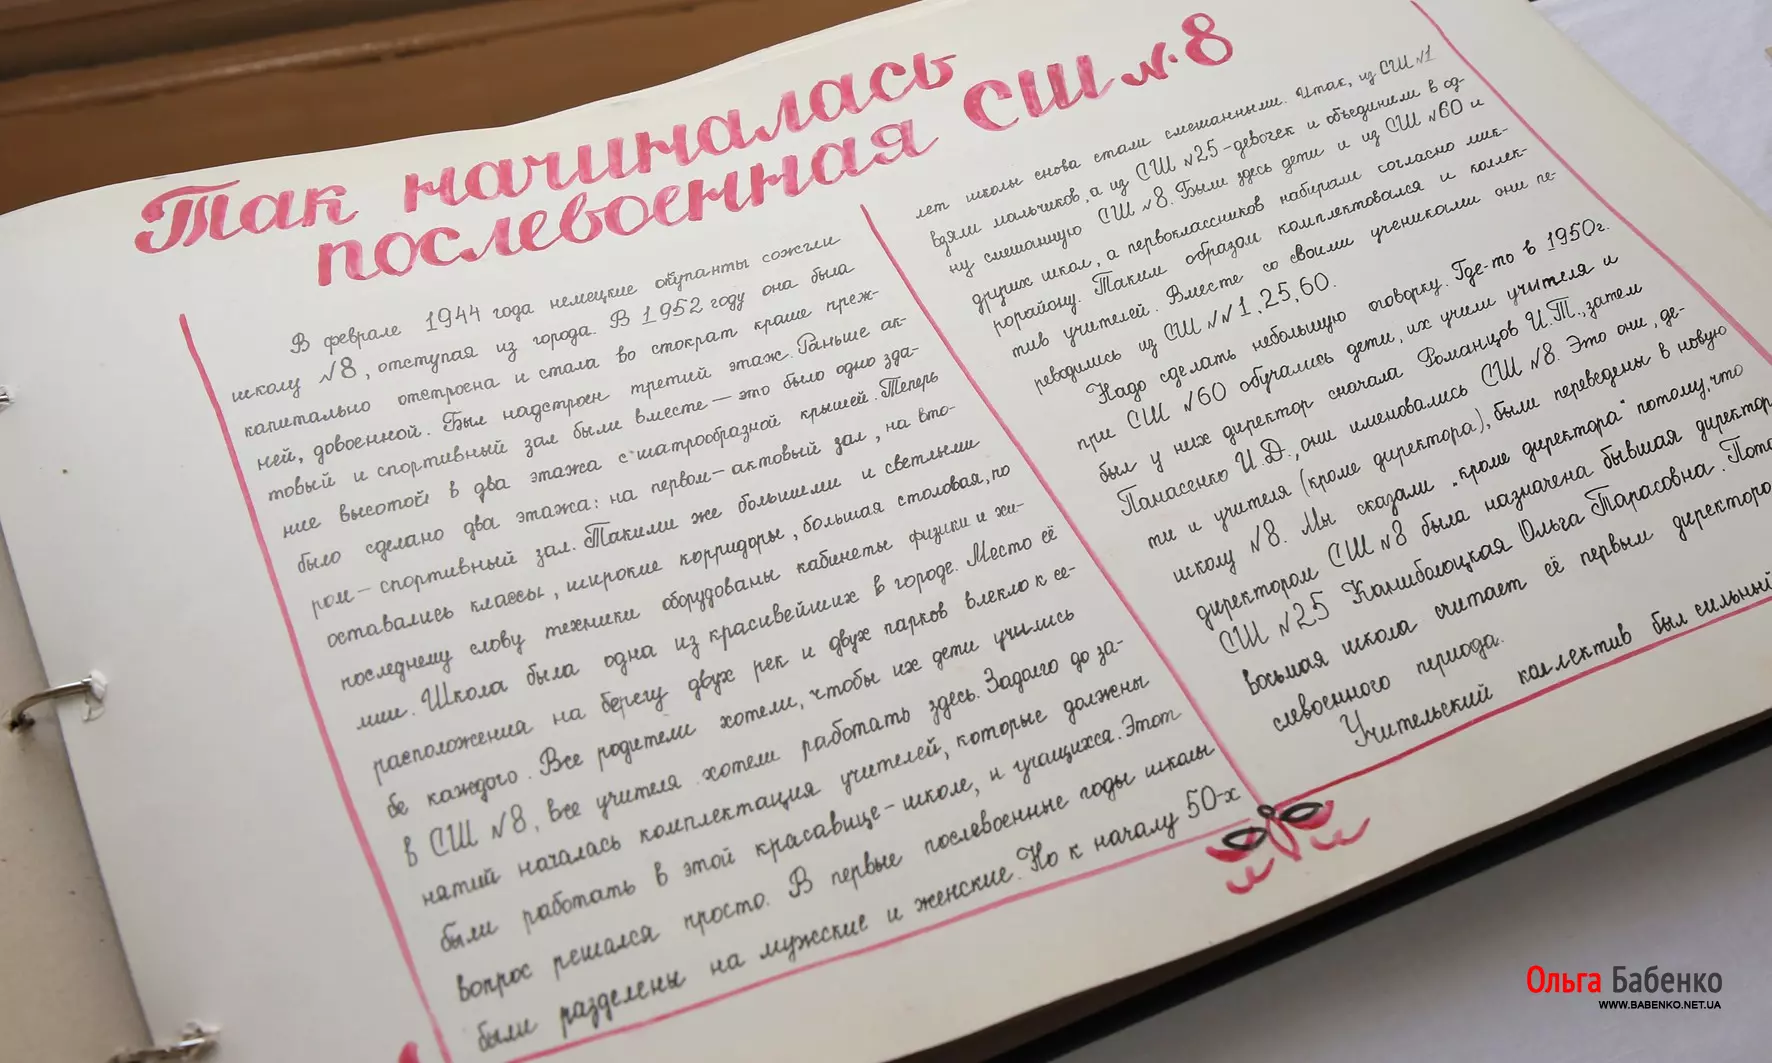 Так начиналась
послевоенная СШ №8
В феврале 1944 года немецкие окупанты сожгли
школу №8, отступая из города. В 1952 году она была
капитально отстроена и стала во стократ краше преж-
ней, довоенной. Был надстроен третий этаж. Раньше ак-
товый и спортивный зал были вместе — это было одно зда-
ние высотой в два этажа с шатрообразной крышей. Теперь
было сделано два этажа: на первом — актовый зал, на вто-
ром — спортивный зал. Такими же большими и светлыми
оставались классы, широкие корридоры, большая столовая, по
последнему слову техники оборудованы кабинеты физики и хи-
мии. Школа была одна из красивейших в городе. Место её
расположения на берегу двух рек и двух парков влекло к се-
бе каждого. Все родители хотели, чтобы их дети учились
в СШ №8, все учителя хотели работать здесь. Задолго до за-
нятий началась комплектация учителей, которые должны
были работать в этой красавице-школе, и учащихся. Этот
вопрос решался просто. В первые послевоенные годы школы
были разделены на мужские и женские. Но к началу 50-х
лет школы снова стали смешанными. Итак, из СШ №1
взяли мальчиков, а из СШ №25 - девочек и объединили в од-
ну смешанную СШ №8. Были здесь дети и из СШ №60 и
других школ, а первоклассников набирали согласно мик-
рорайону. Таким образом комплектовался и коллек-
тив учителей. Вместе со своими учениками они пе-
реводились из СШ №№1, 25, 60.
Надо сделать небольшую оговорку. Где-то в 1950г.
при СШ №60 обучались дети, их учили учителя и
был у них директор сначала Романцов И.Т., затем
Панасенко И.Д., они именовались СШ №8. Это они, де-
ти и учителя (кроме директора), были переведены в новую
школу №8. Мы сказали „кроме директора" потому, что
директором СШ №8 была назначена бывшая директор
СШ №25 Ольга Тарасовна.
восьмая школа считает её первым директоро
слевоенного периода.
Учительский коллектив был сильный
Ольга Бабенко
WWW.BABENKO.NET.UA